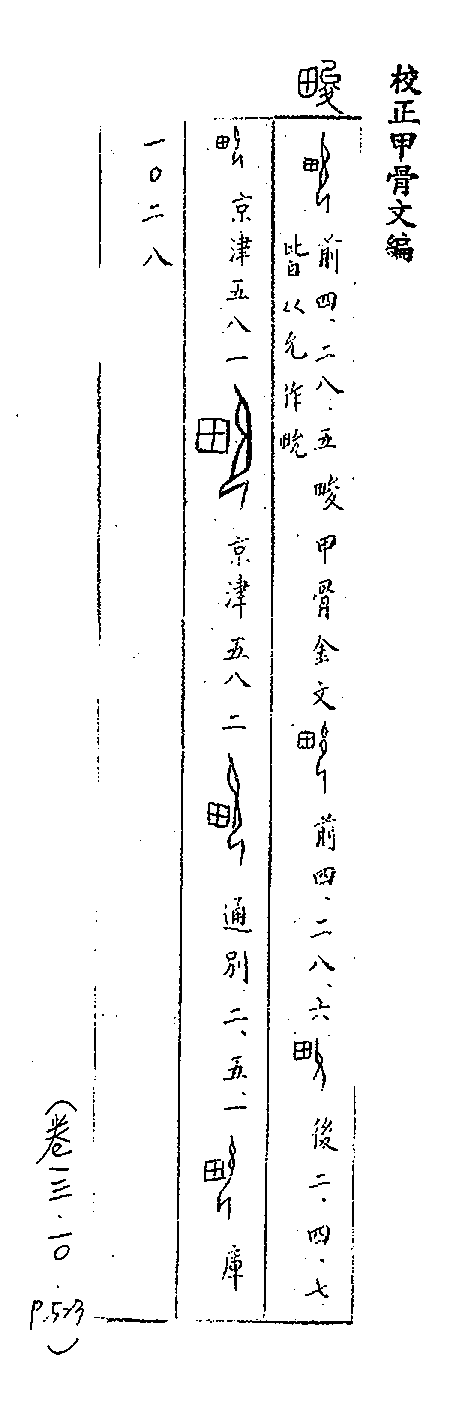 校正甲骨文編
畯
前四、二八、五 畯甲骨金文 前四、二八、六 後二、四、七
皆以允作畯
京津五八一 京津五八二 通別二、五、一 庫
一〇二八
(卷一三·一〇·
P.523)